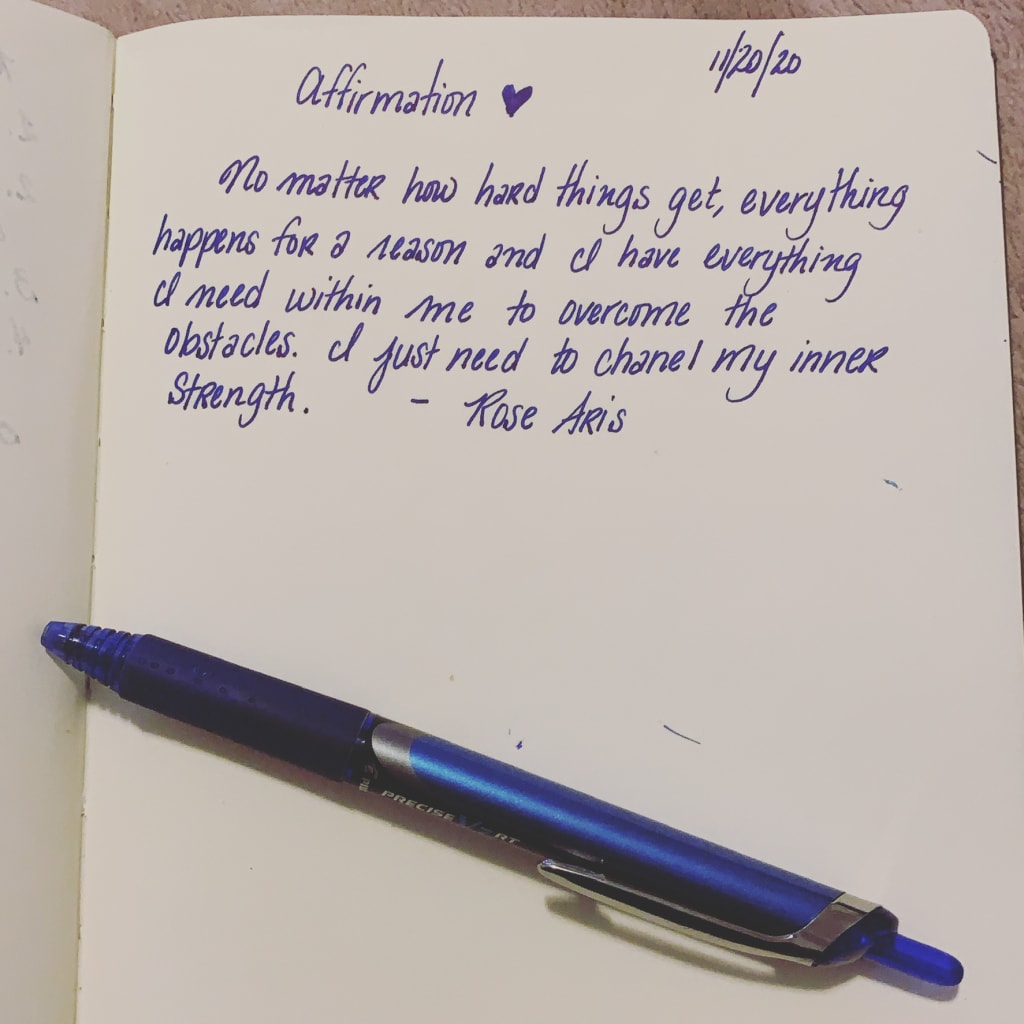 Affirmation ♥
11/20/20
No matter how hard things get, everything
happens for a reason and I have everything
I need within me to overcome the
obstacles. I just need to chanel my inner
strength. - Rose Aris
PRECISE V5 RT